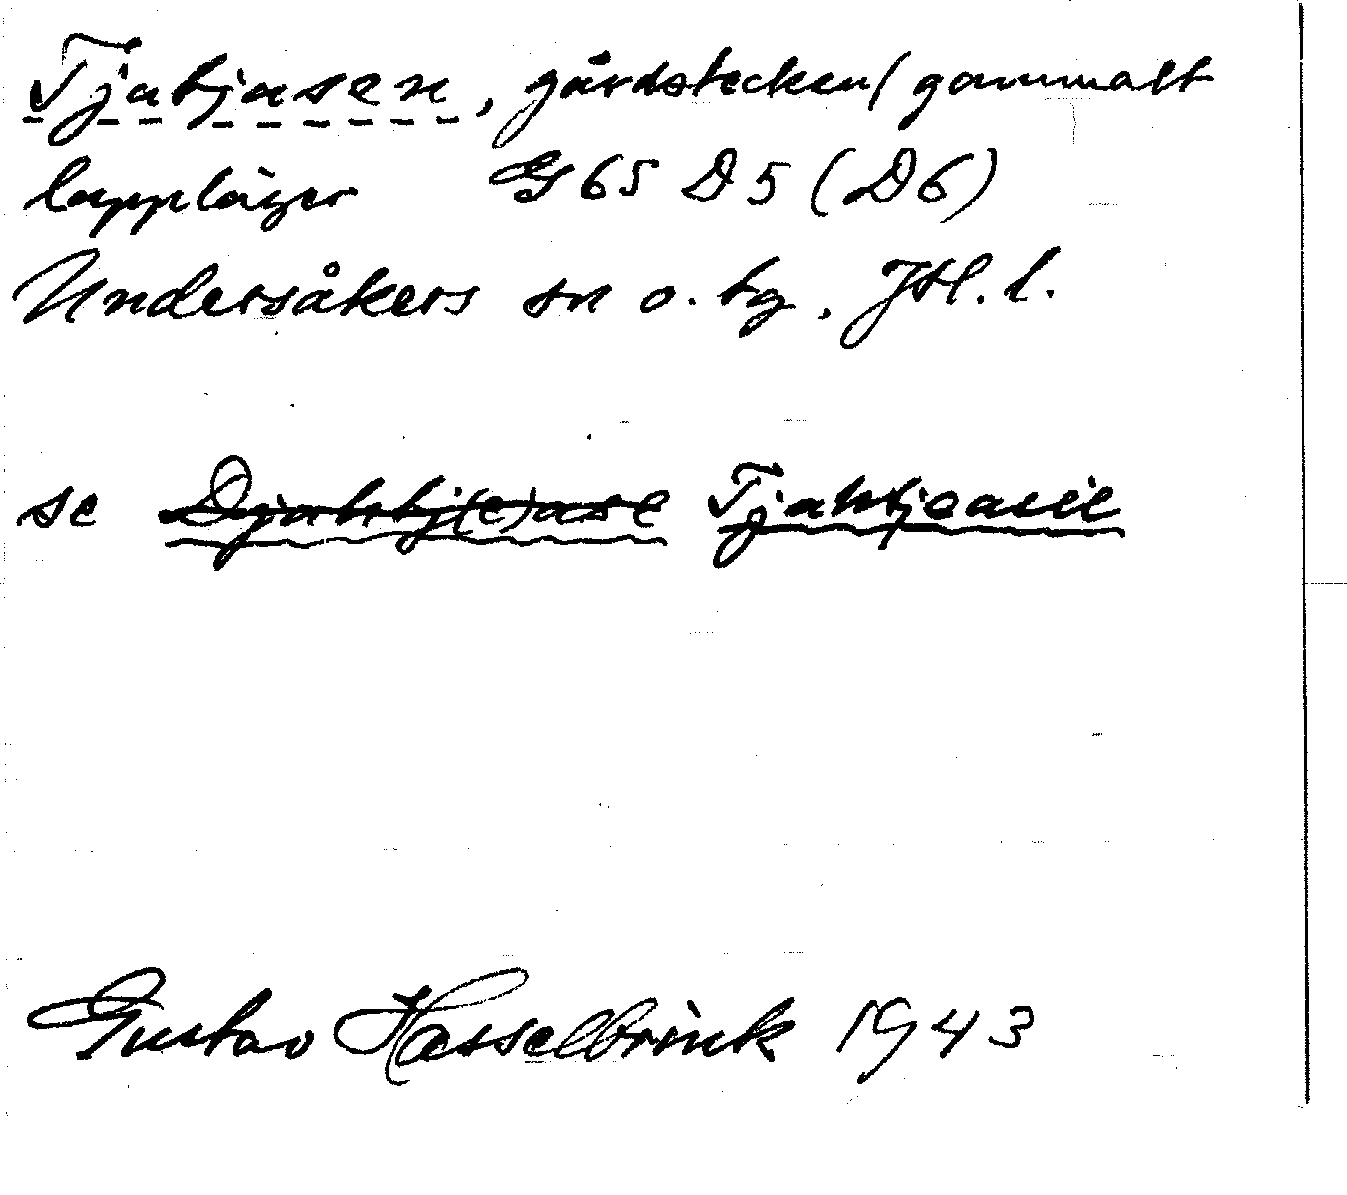 Tjatjasen, gårdstecken/gammalt
lappläger G 65 D 5 (D6)
Undersåkers sn o. tg, Jtl. l.
se Djaktj(e)ase Tjaktjeasie
Gustav Hasselbrink 1943